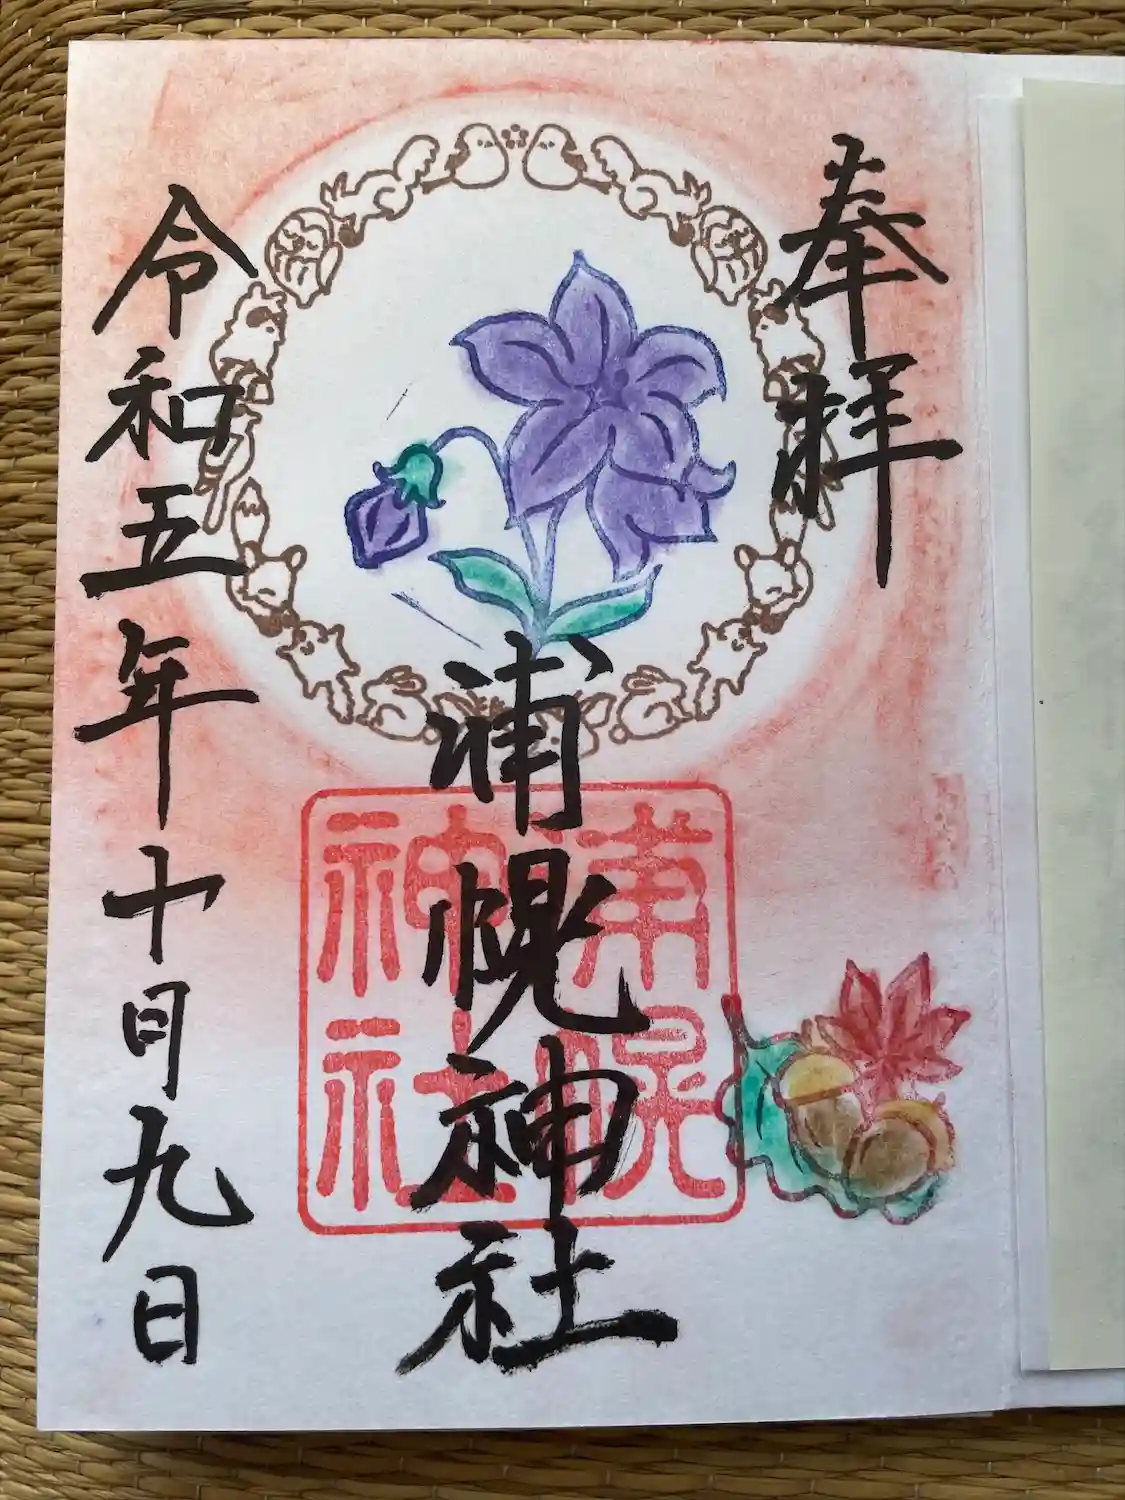 奉拝
浦幌神社
浦幌
神社
令和五年十月九日